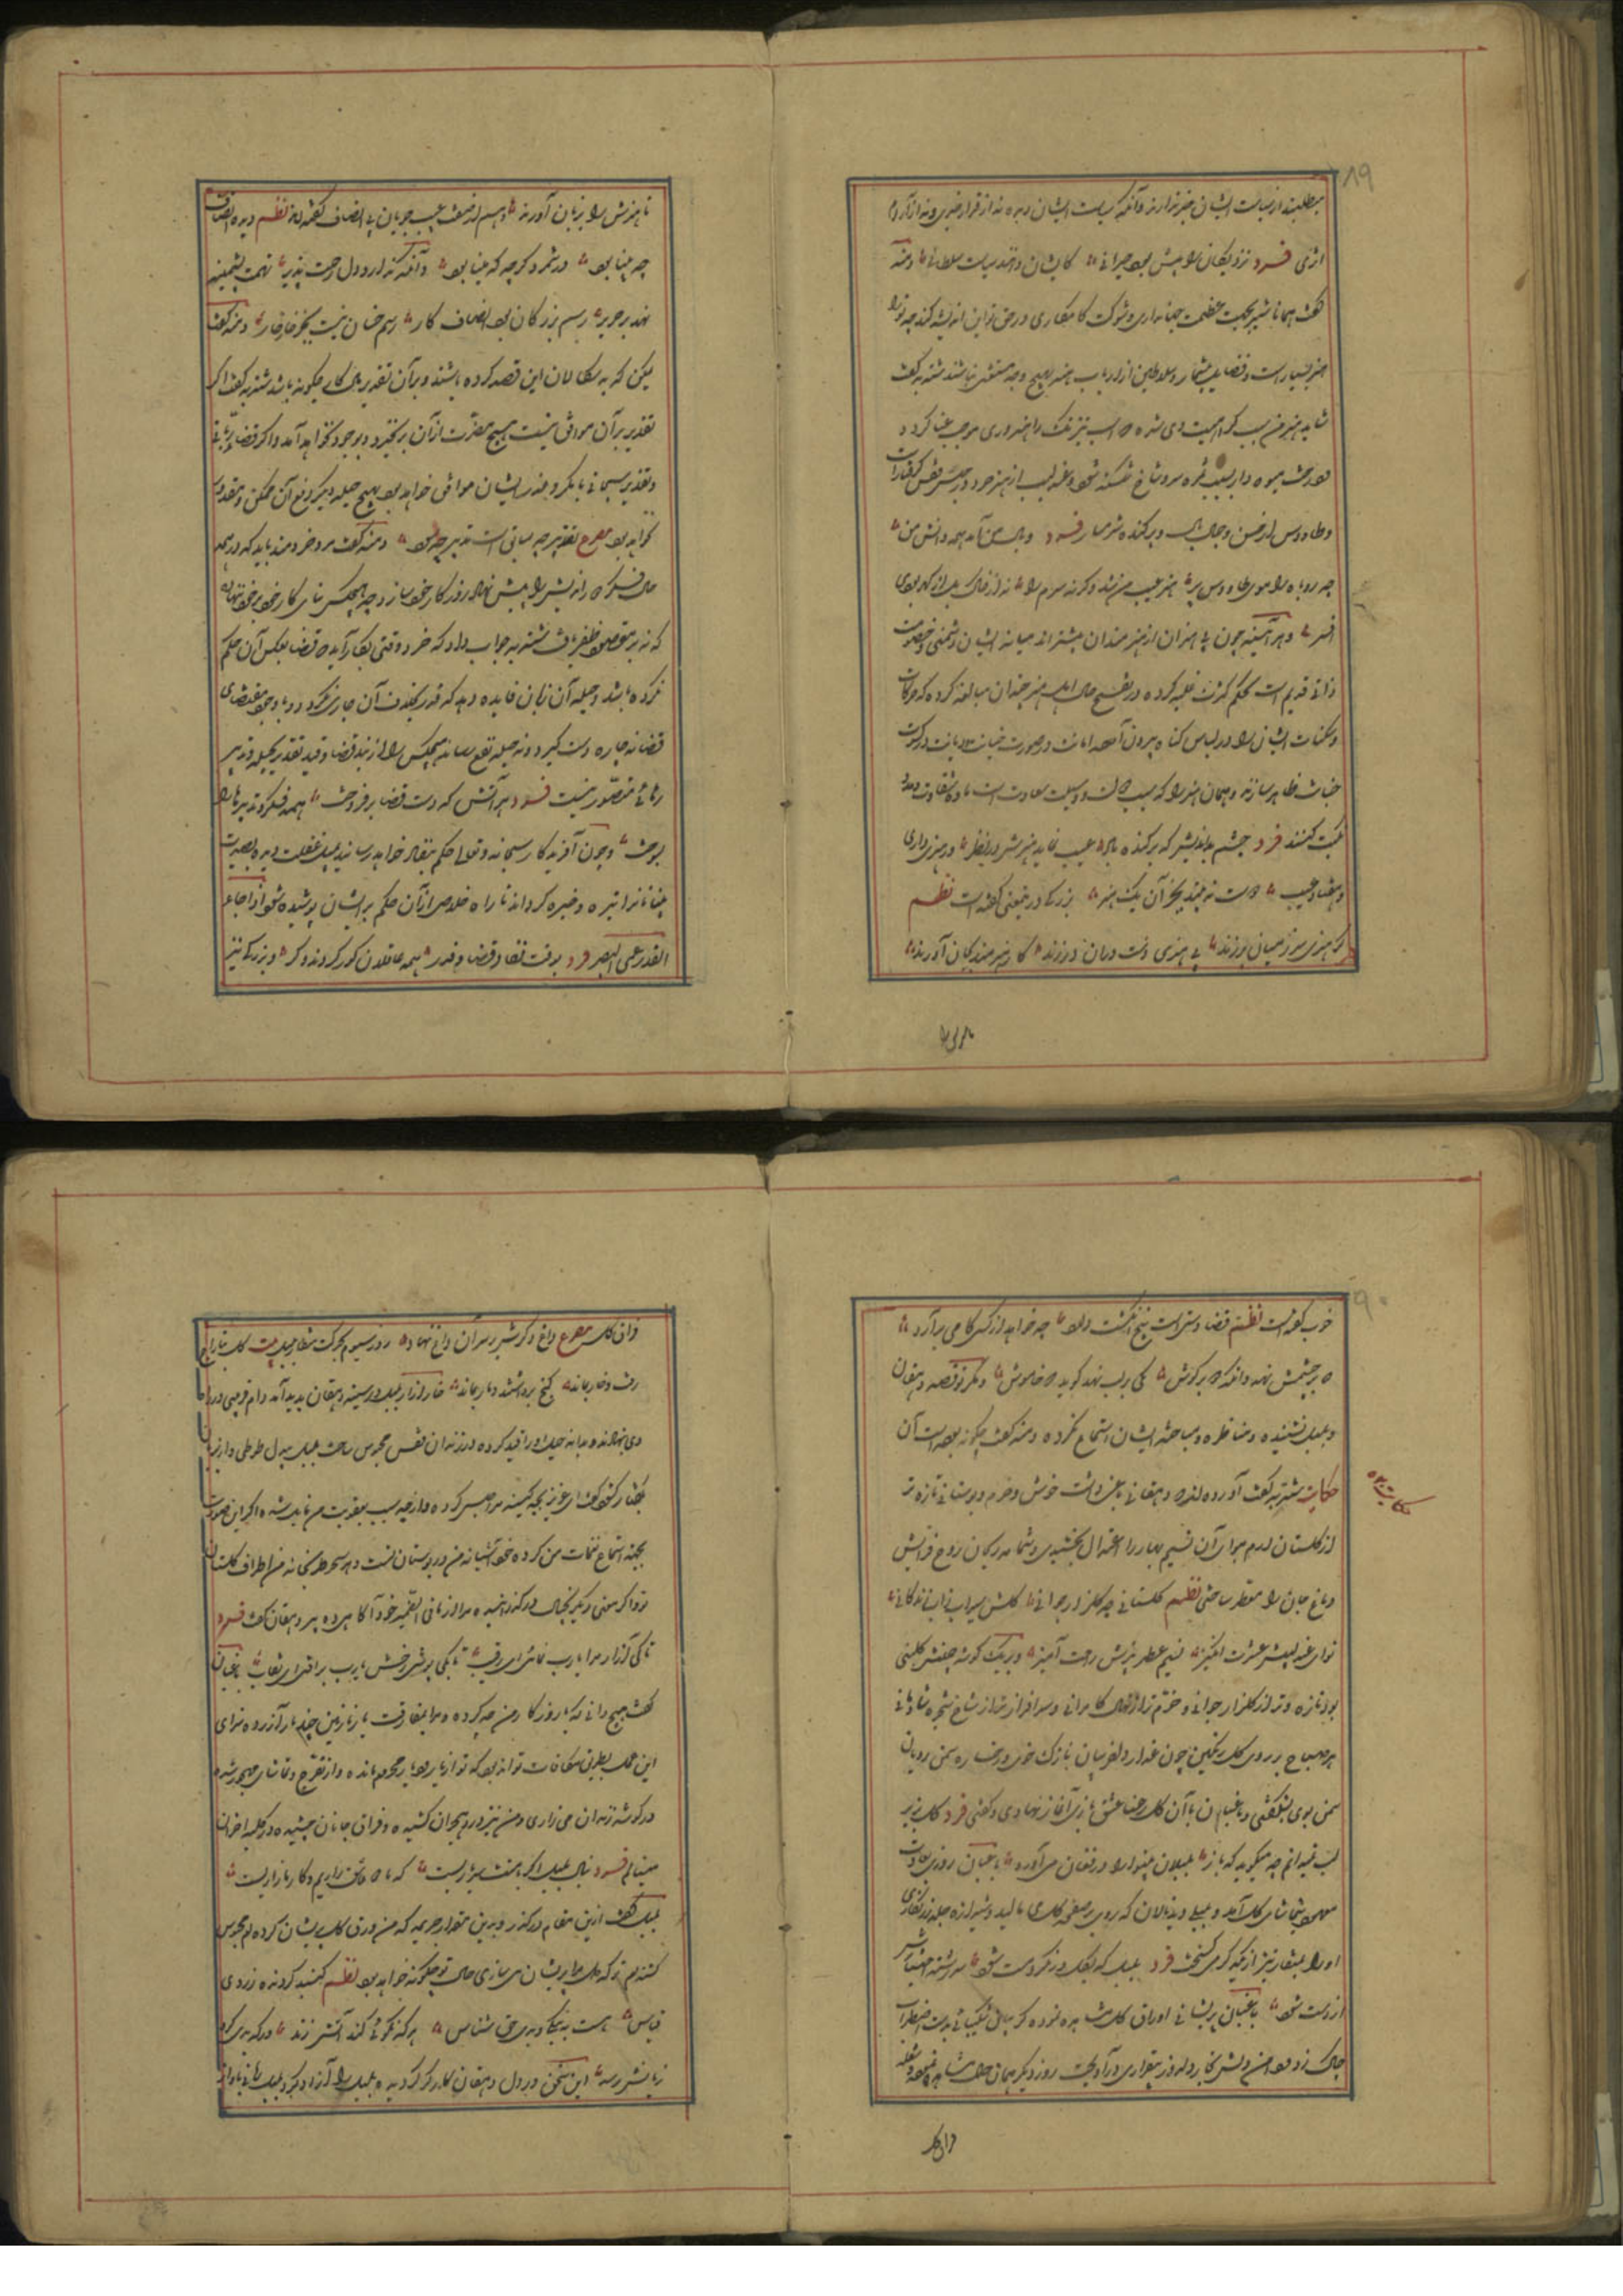 ۸۹
میطلبند از سیاست ایشان خبر ندارند و آنکه سیاست ایشان دیده نه از قرار خبری و نه از آرام
اثری فرد نزدیکان را بیش بود حیرانی کایشان دانند سیاست سلطانی دمنه
گفت همانا شیر بجهت عظمت جهانداری و شوکت کامکاری در حق تو این اندیشه کند چه ترا
هنر بسیار است و فضایل بیشمار و سلاطین از ارباب هنر بهیچ وجه مستغنی نباشند شنزبه گفت
شاید هنر من سبب کراهیت وی شده که اسب تیزتک را هنروری موجب عنا گردد
و درخت میوه دار بسبب ثمره سر و شاخ شکسته شود و عندلیب از هنر خود در حبس قفس گرفتار است
و طاووس از حسن و جمال بال و پر کنده شرمسار فرد وبال من آمد همه دانش من
چو روباه را موی و طاووس پر هنر عیب من شد وگرنه سرم را نه از خاک بد از گهر بودی
افسر و هر آئینه چون بی هنران از هنرمندان بیشترند میانه ایشان دشمنی و خصومت
ذاتی قدیم است بحکم کثرت غلبه کرده در تقبیح حال اهل هنر چندان مبالغه کرده که حرکات
و سکنات ایشان را در لباس گناه بیرون آورده امانت در صورت خیانت و دیانت در کسوت
خباثت ظاهر سازند و همان هنر را که سبب دولت و وسیلت سعادت است ماده شقاوت و مدد
نکبت کنند فرد چشم بداندیش که برکنده باد عیب نماید هنرش در نظر ور هنری داری
و هفتاد عیب دوست نبیند بجز آن یک هنر بزرگی درین معنی گفته است نظم
بی هنری دست درازی زنند کار هنرمند بجان آورند
تا هنرش را
تا هنرش را بزبان آورند و هم در صفت عیب جویان بی انصاف گفته اند نظم دیده انصاف
چو بینا بود در شمرد گرچه که مینا بود وآنکه ندارد دل رحمت پذیر تهمت پشمینه
نهد بر حریر رسم بزرگان بود انصاف کار رسم خسان نیست بجز خارخار دمنه گفت
یمکن که بدسگالان این قصد کرده باشند و بر آن تقدیر مآل کار چگونه باشد شنزبه گفت اگر
تقدیر بر آن موافق نیست هیچ مضرت از آن برنخیزد و بوجود نخواهد آمد و اگر قضای ربانی
و تقدیر سبحانی با مکر و غدر ایشان موافق خواهد بود بهیچ حیله دیگر دفع آن ممکن و مقدور
نخواهد بود مصرع تقدیر چو سابق است تدبیر چه سود دمنه گفت مرد خردمند باید که در همه
حال فکر دوراندیش را پیش نهاد روزگار خود سازد چه هیچکس بنای کار خود بر خرد ننهاد
که نه بر مقصود ظفر یافت شنزبه جواب داد که خرد وقتی بکار آید که قضا بعکس آن حکم
نکرده باشد و حیله آن زمان فایده دهد که قدر بخلاف آن جاری نگردد و با وجود مقتضای
قضا نه چاره دست گیرد و نه حیله نفع رساند هیچکس را از بند قضا و قید تقدیر بحیله و تدبیر
رهائی متصور نیست فرد هر آتش که دست قضا برفروخت همه فکر و تدبیرها را
بسوخت و چون آفریدگار سبحانه و تعالی حکم بنفاذ خواهد رسانید بمیل غفلت دیده بصیرت
بینایان را تیره و خیره گرداند تا راه خلاصی از آن حکم بر ایشان پوشیده شود اذا جاء
القدر عمی البصر فرد بوقت نفاذ قضا و قدر همه عاقلان کور گردند و کر و بزرگی نیز
۹۰
خوب گفته است نظم قضا دستی است پنج انگشت دارد چو خواهد از کسی کامی برآرد
دو بر چشمش نهد وانگه دو بر گوش یکی بر لب نهد گوید که خاموش و مگر تو قصه دهقان
و بلبل نشنیده و مناظره و مباحثه ایشان استماع نکرده دمنه گفت چگونه بوده است آن
حکایت شنزبه گفت آورده اند که دهقانی باغی داشت خوش و خرم و بوستانی تازه تر
از گلستان ارم هوای آن نسیم بهار را اعتدال بخشیدی و شمامه ریحان روح افزایش
دماغ جان را معطر ساختی نظم گلستانی چو گلزار جوانی گلش سیراب آب زندگانی
نوای عندلیبش عشرت انگیز نسیم عطر بیزش راحت آمیز و بر یک گوشه چمنش گلبنی
بود تازه تر از گلزار جوانی و خرم تر از نهال کامرانی و سرافرازتر از شاخ شجره شادمانی
هر صباح بر روی گل رنگین چون عذار دلفریبان نازک خوی و رخساره سمن بویان
سمن بوی بشکفتی و باغبان با آن گل رعنا عشق بازی آغاز نهادی و گفتی فرد گل بزیر
لب نمیدانم چه میگوید که باز بلبلان بینوا را در فغان می آورد باغبان روزی بعادت
معهود بتماشای گل آمد و بلبلی دید نالان که روی بر صفحه گل می مالید و شیرازه جلد زرنگاری
او را بمنقار تیز از یکدیگر می گسیخت فرد بلبل که بگل درنگرد مست شود سررشته اختیارش
از دست شود باغبان پریشانی اوراق گل مشاهده نموده گریبان شکیبائی بدست اضطراب
چاک زد و دامن دلش بخار دلدوز بیقراری درآویخت روز دیگر همان حال مشاهده نمود و شعله
حکایت
فراق گل
فراق گل مصرع داغ دگرش بر سر آن داغ نهاد روز سیوم بحرکت منقار بلبل بیت گل بتاراج
رفت و خار بماند گنج برداشتند و مار بماند خار آزار بلبل در سینه دهقان پدید آمد دام فریبی در راه
وی نهاد و بدانه حیل او را قید کرده در زندان قفس محبوس ساخت بلبل بیدل طوطی وار زبان
بگفتار گشود گفت ای عزیز بچه کینه مرا حبس کرده و از چه سبب بعقوبت من مایل شده اگر این صورت
بجهت استماع نغمات من کرده خود آشیانه من در بوستان تست و هر سحر طربخانه من اطراف گلستان
تو و اگر معنی دیگر بخیال درگذرانیده مرا از ما فی الضمیر خود آگاهی ده پیر دهقان گفت فرد
تا کی آزار مرا یار نمائی ای رقیب تا بکی پوشی رخش یارب برافتد ای نقاب باغبان
گفت هیچ دانی که با روزگار من چه کرده و مرا بمفارقت یار نازنین چند بار آزرده سزای
این عمل بطریق مکافات تواند بود که تو از یار و دیار محروم مانده و از تفرج و تماشا مهجور شده
در گوشه زندان می زاری و من نیز درد هجران کشیده و فراق جانان چشیده در کلبه احزان
مینالم فرد بنال بلبل اگر با منت سر یاریست که ما دو عاشق زاریم و کار ما زاریست
بلبل گفت ازین مقام درگذر و بدین مقدار جریمه که من ورق گل پریشان کرده ام محبوس
گشته ام تو که دل مرا پریشان می سازی حال تو چگونه خواهد بود نظم گنبد گردنده ز روی
قیاس هست به نیکی و بدی حق شناس هر که نکوئی کند آنش رسد ور که بدی کرد
زیانش رسد این سخن در دل دهقان کارگر گردیده بلبل را آزاد کرد بلبل زبان بآواز